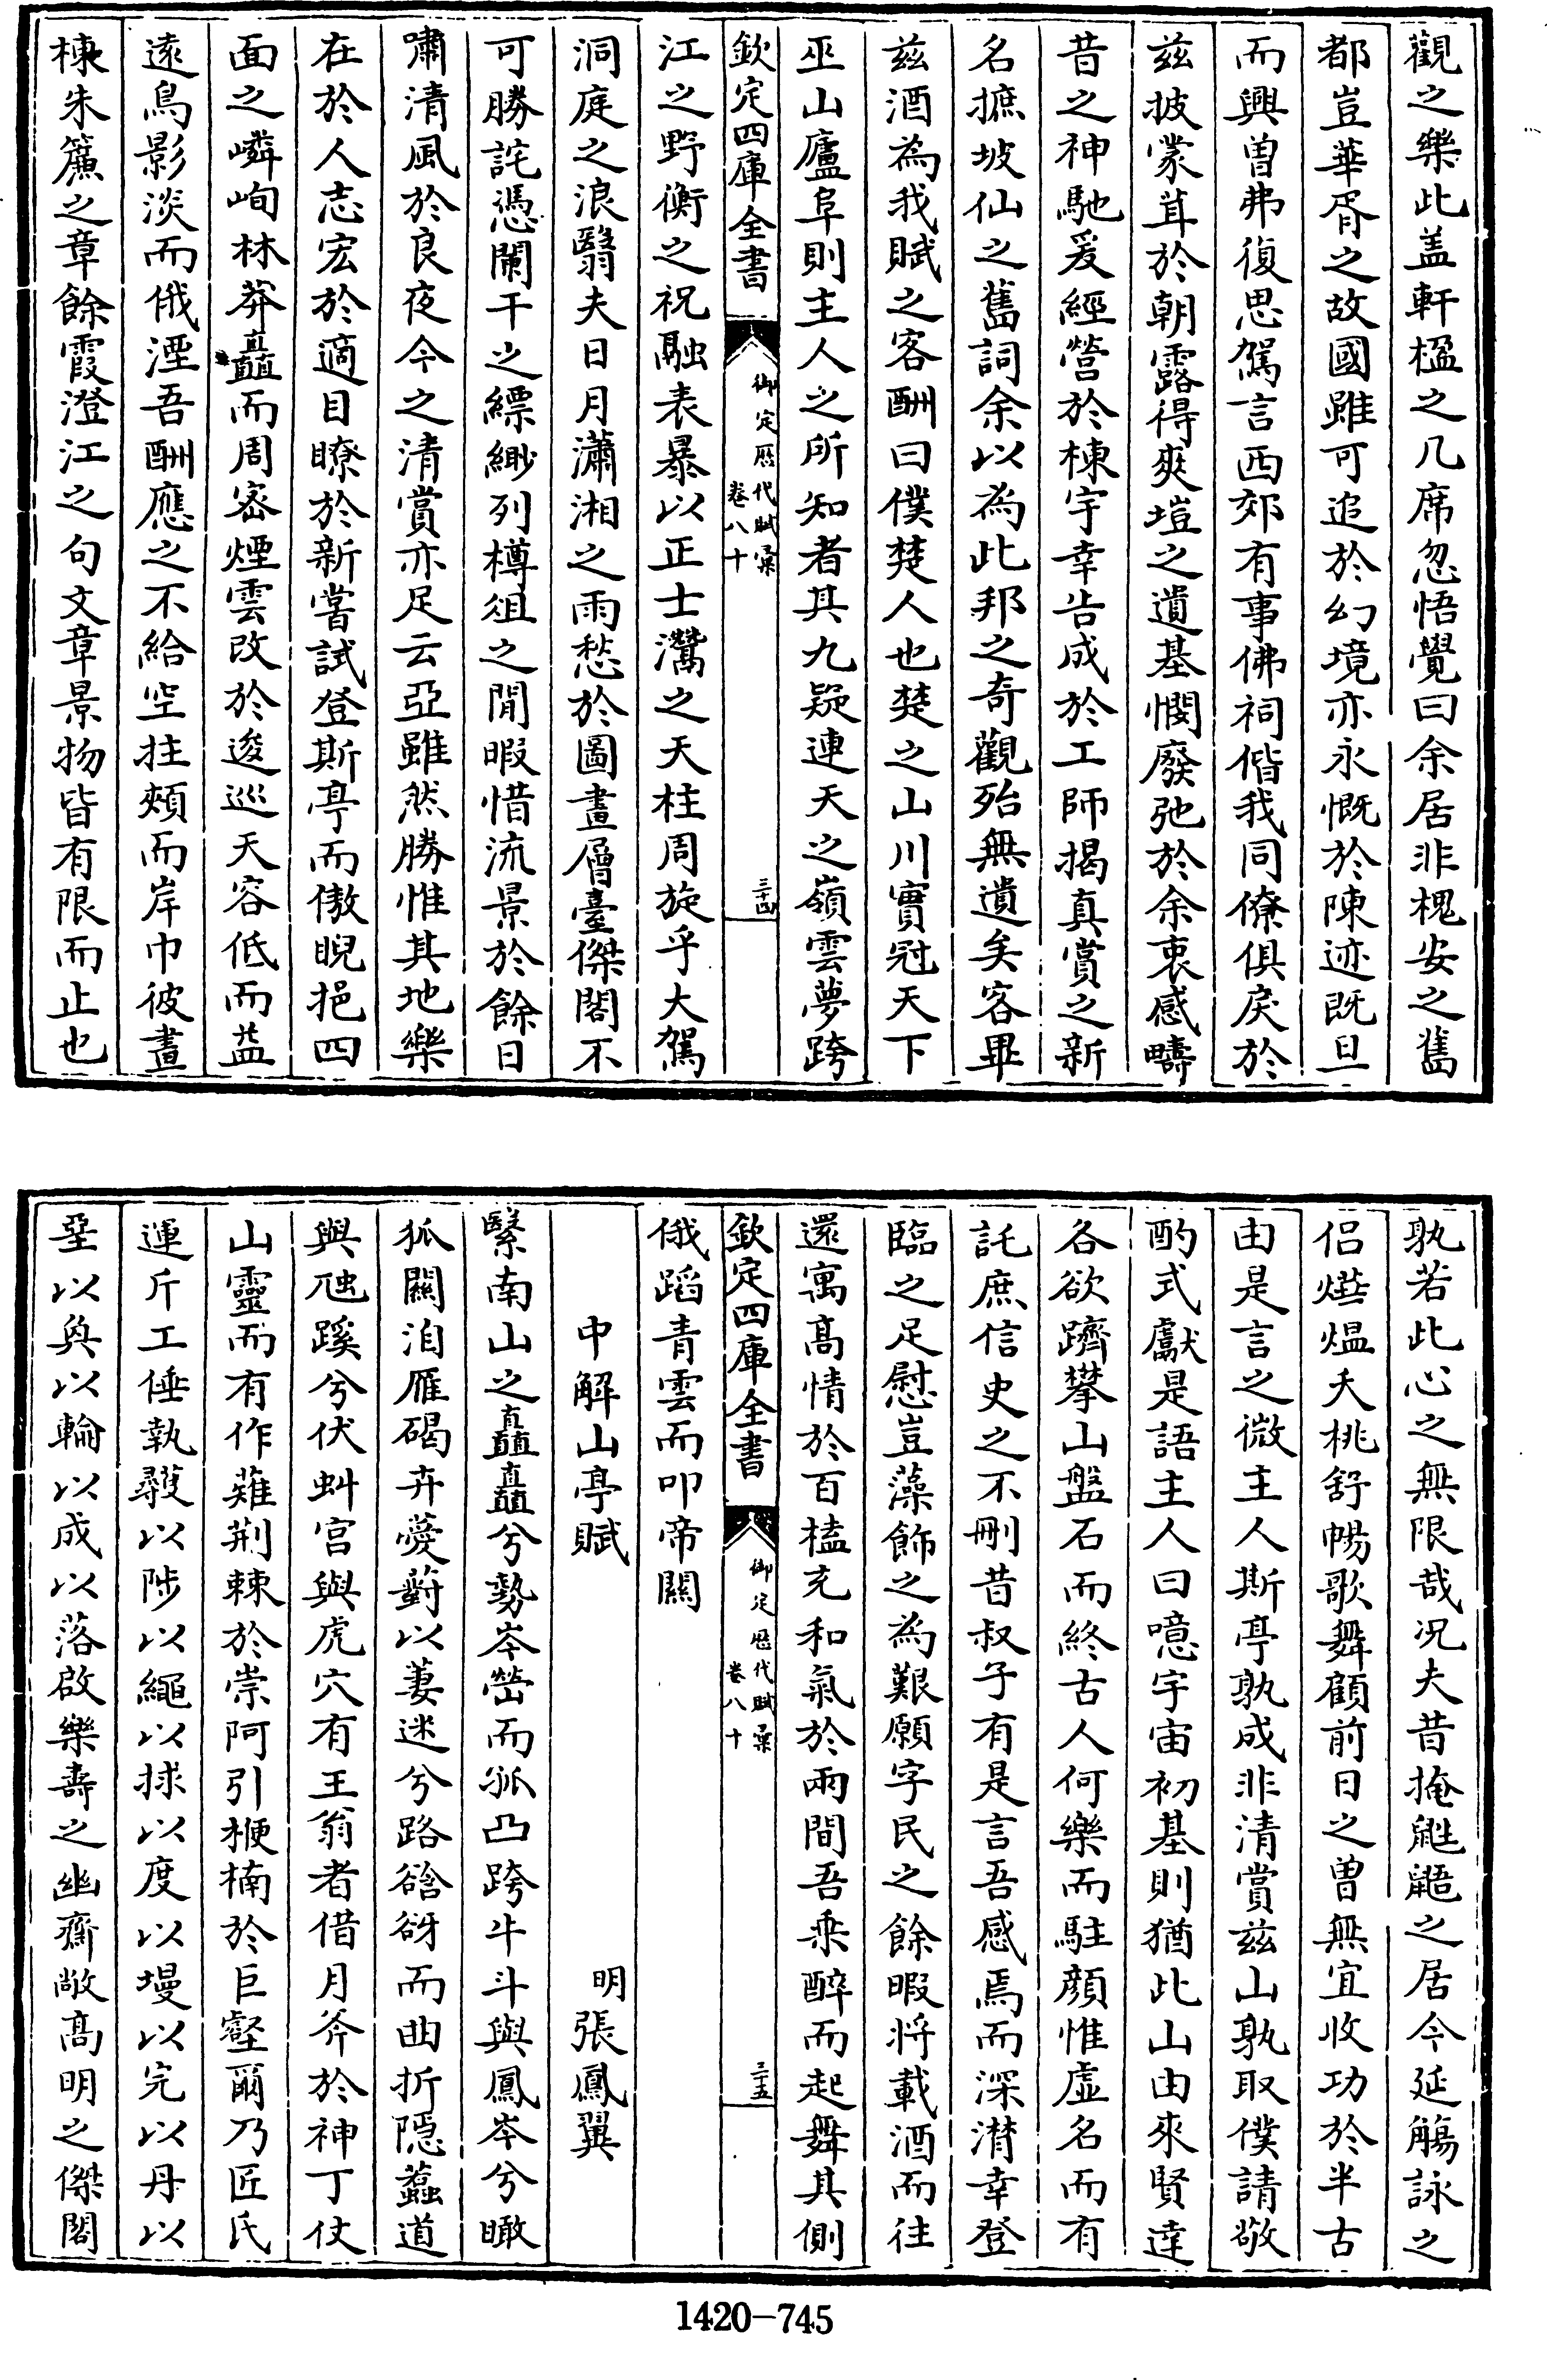 觀之樂此盖軒楹之几席忽悟覺曰余居非槐安之舊
都豈華胥之故國雖可追於幻境亦永慨於陳迹既旦
而興曾弗復思駕言西郊有事佛祠偕我同僚俱戾於
兹披蒙茸於朝露得爽塏之遺基憫廢弛於余衷感疇
昔之神馳爰經營於棟宇幸告成於工師揭真賞之新
名摭坡仙之舊詞余以為此邦之奇觀殆無遺矣客畢
兹酒為我賦之客酬曰僕楚人也楚之山川實冠天下
巫山廬阜則主人之所知者其九疑連天之嶺雲夢跨
欽定四庫全書
御定歷代賦彙
卷八十
三十四
江之野衡之祝融表暴以正士灊之天柱周旋乎大駕
洞庭之浪翳夫日月瀟湘之雨愁於圖畫層臺傑閣不
可勝詫憑闌干之縹緲列樽俎之閒暇惜流景於餘日
嘯清風於良夜今之清賞亦足云亞雖然勝惟其地樂
在於人志宏於適目瞭於新嘗試登斯亭而傲睨挹四
面之嶙峋林莽矗而周宻煙雲改於逡巡天容低而益
逺鳥影淡而俄湮吾酬應之不給空拄頰而岸巾彼畫
棟朱簾之章餘霞澄江之句文章景物皆有限而止也
孰若此心之無限哉况夫昔掩鼪鼯之居今延觴詠之
侣燃熅夭桃舒暢歌舞顧前日之曽無宜收功於半古
由是言之微主人斯亭孰成非清賞兹山孰取僕請敬
酌式獻是語主人曰噫宇宙初基則猶此山由來賢逹
各欲躋攀山盤石而終古人何樂而駐顔惟虚名而有
託庶信史之不刪昔叔子有是言吾感焉而深潸幸登
臨之足慰豈藻飾之為艱願字民之餘暇将載酒而往
還寓髙情於百榼充和氣於兩間吾乘醉而起舞其側
欽定四庫全書
御定歷代賦彙
卷八十
三十五
俄蹈青雲而叩帝關
中解山亭賦
明張鳳翼
繄南山之矗矗兮勢岑嶨而孤凸跨牛斗與鳳岑兮瞰
狐關洎雁碣卉薆薱以萋迷兮路谽谺而曲折隠蘁道
與虺蹊兮伏虯宫與虎穴有王翁者借月斧於神丁仗
山靈而有作薙荆棘於崇阿引楩楠於巨壑爾乃匠氏
運斤工倕執彠以陟以繩以捄以度以墁以完以丹以
堊以奐以輪以成以落啟樂壽之幽齋敞髙明之傑閣
1420-745